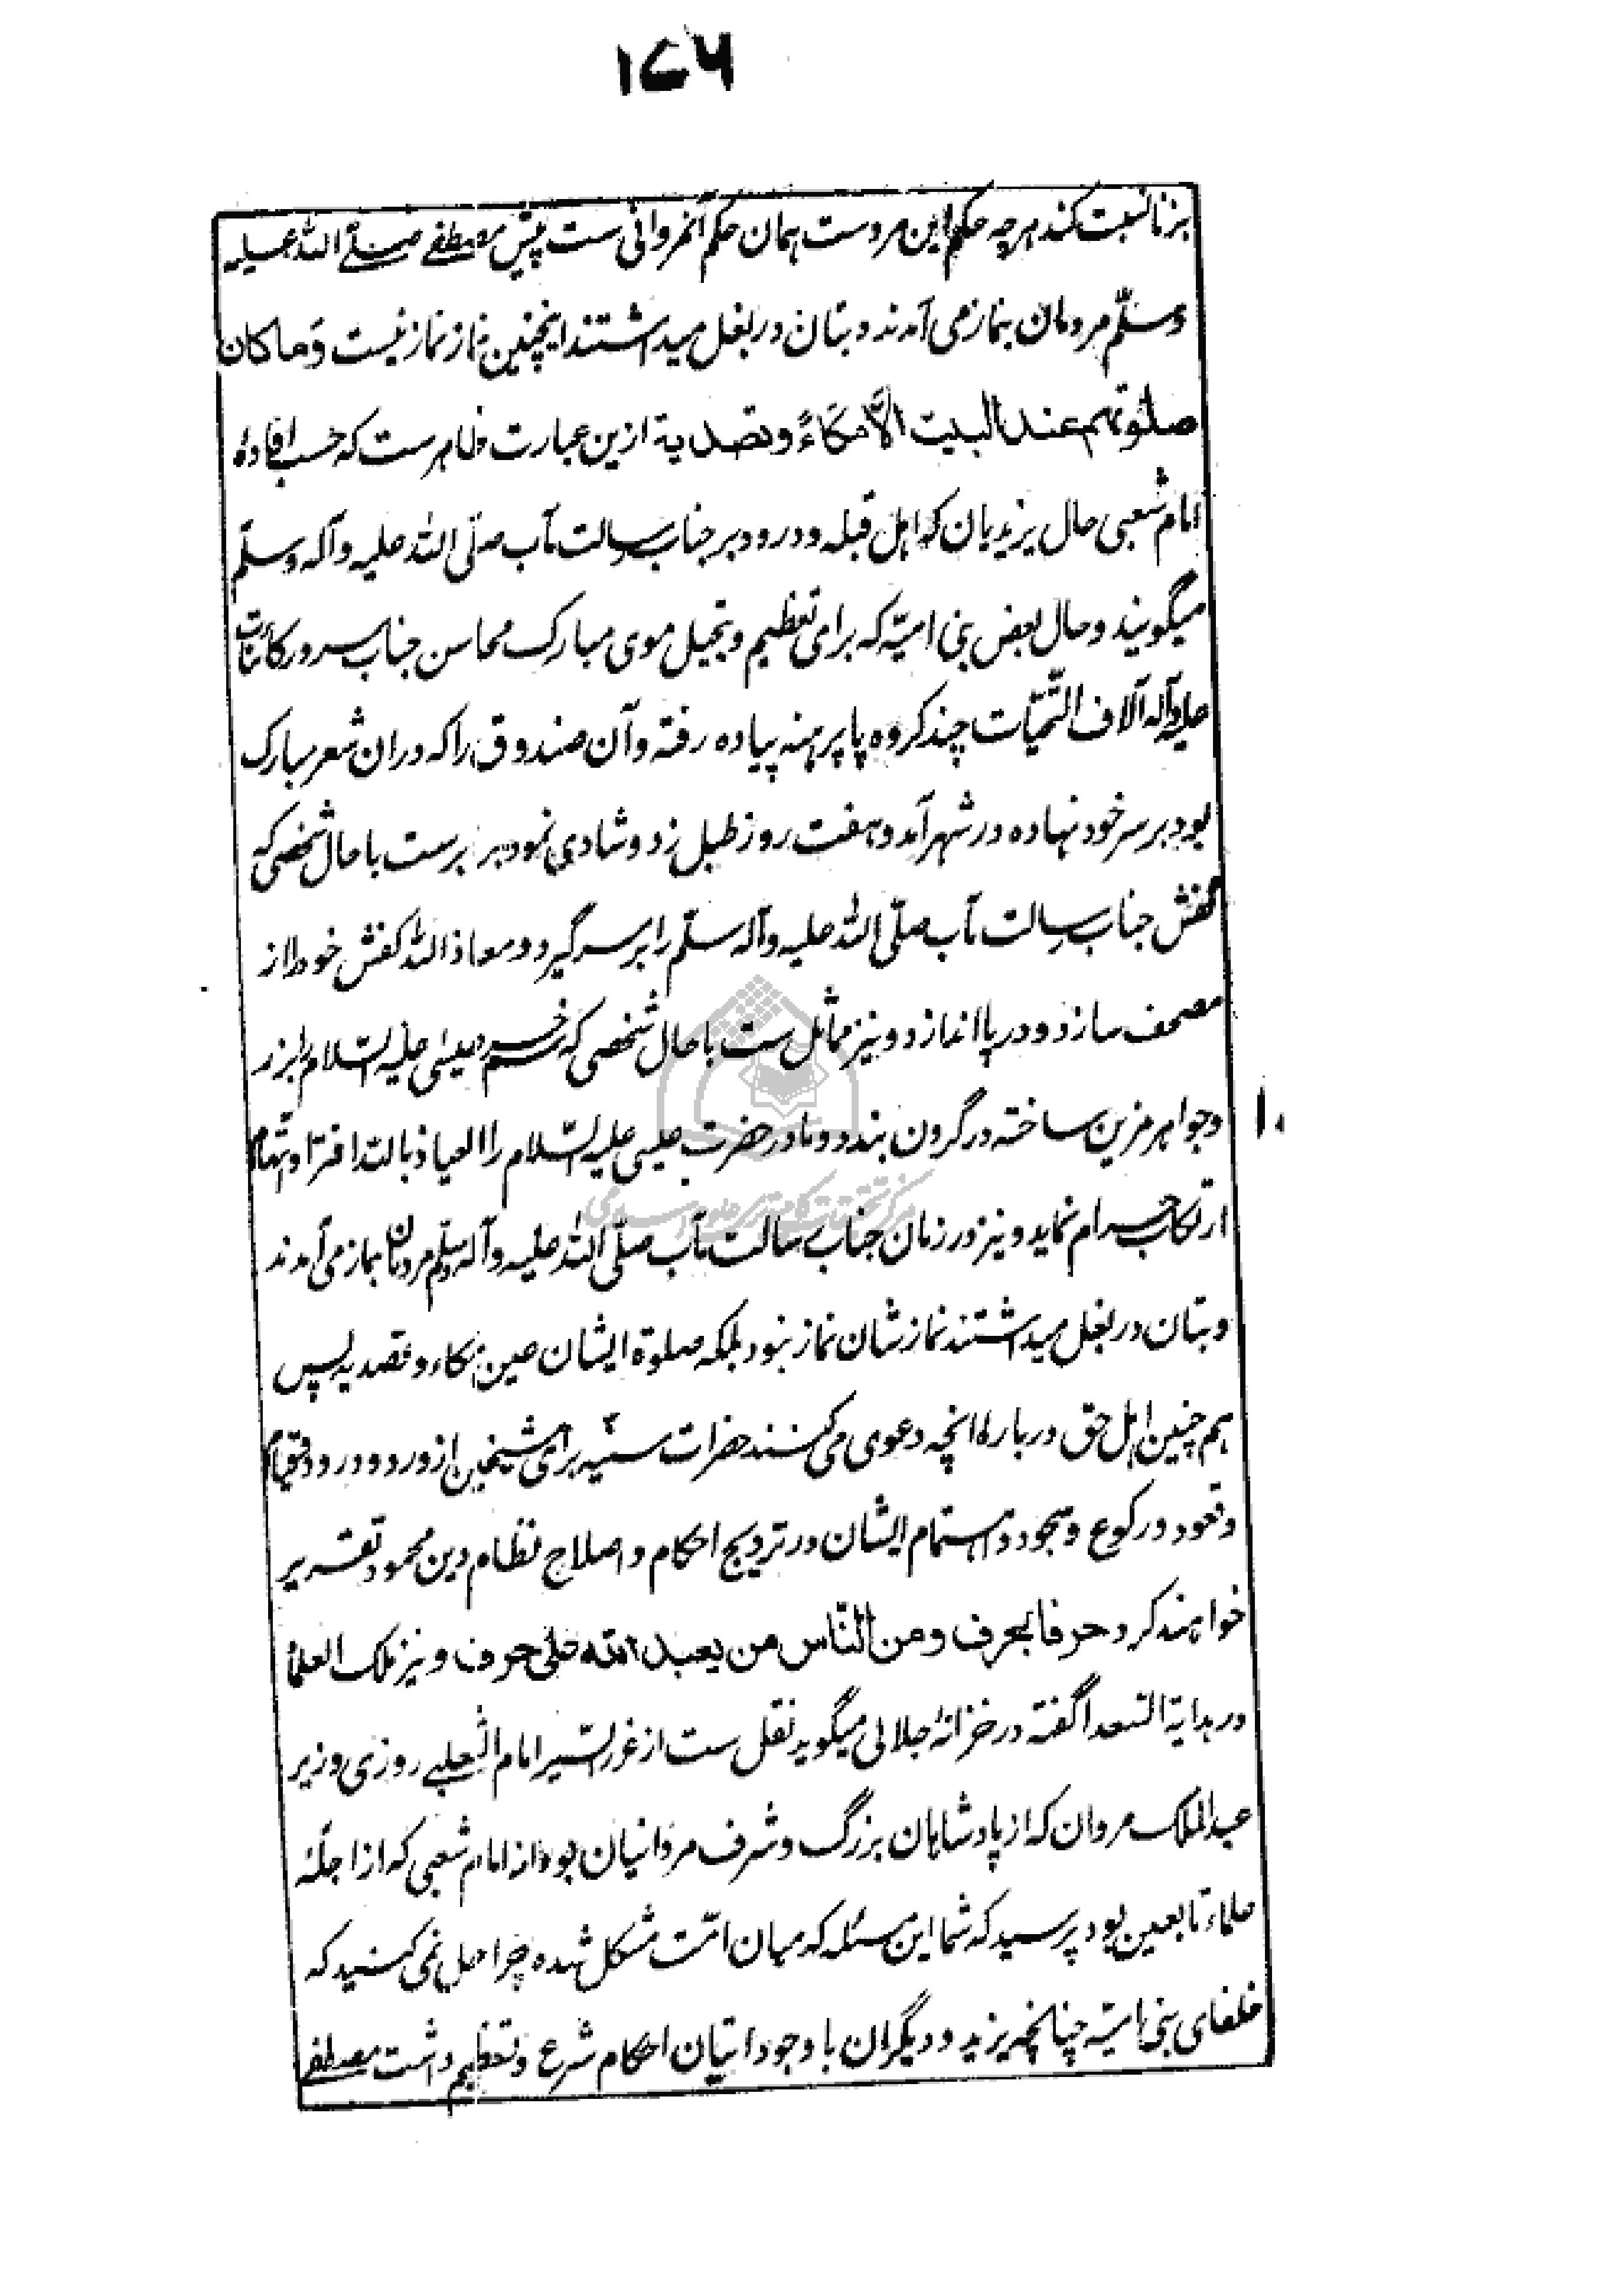 ۱۷۶
بزنا نسبت کند هرچه حکم این مردست همان حکم آنمروانی ست پیش مصطفے صلّے اللّه علیه
وسلّم مردمان بنماز می آمدند و بتان در بغل میداشتند اینچنین نماز نماز نیست وَما کان
صلوتهم عند البیت الّا مکاءً و تصدیة ازین عبارت ظاهرست که حسب افادهٔ
امام شعبی حال یزیدیان که اهل قبله و درود بر جناب رسالت مآب صلّی اللّه علیه و آله وسلّم
میگویند و حال بعض بنی امیّه که برای تعظیم و تبجیل موی مبارک محاسن جناب سرور کائنات
علیه وآله آلاف التّحیّات چند کروه پا برهنه پیاده رفته و آن صندوق را که دران شعر مبارک
بود بر سر خود نهاده در شهر آمد و هفت روز طبل زد و شادی نمود برابرست با حال شخصی که
کفش جناب رسالت مآب صلّی اللّه علیه وآله سلّم را بر سر گیرد و معاذ اللّه کفش خود را از
مصحف سازد و در پا اندازد و نیز مماثل ست با حال شخصی که سم خر عیسٰی علیه السّلام را بزر
وجواهر مزین ساخته در گردن بندد و مادر حضرت عیسی علیه السّلام را العیاذ باللّه افترا و اتهام
ارتکاب حرام نماید و نیز در زمان جناب رسالت مآب صلّی اللّه علیه وآله وسلّم مردمان بنماز می آمدند
و بتان در بغل میداشتند نماز شان نماز نبود بلکه صلوة ایشان عین مکاء و تصدیه پس
هم چنین اهل حق درباره انچه دعوی می کنند حضرات سنیه برای شیخین از ورد و درود و قیام
و قعود و رکوع و سجود و اهتمام ایشان در ترویج احکام و اصلاح نظام دین محمود تقریر
خواهند کرد حرفا بحرف و من النّاس من یعبد اللّه علی حرف و نیز ملک العلما
در هدایة السعدا گفته در خزانهٔ جلالی میگوید نقل ست از غرر السّیر امام الثعلبے روزی وزیر
عبد الملک مروان که از پادشاهان بزرگ و شرف مروانیان بود از امام شعبی که از اجلّهٔ
علماء تابعین بود پرسید که شما این مسئله که میان امّت مشکل شده چرا حل نمی کنید که
خلفای بنی امیّه چنانچه یزید و دیگران با وجود اتیان احکام شرع و تعظیم داشت مصطفے
۱۰
مرکز تحقیقات کامپیوتری علوم اسلامی